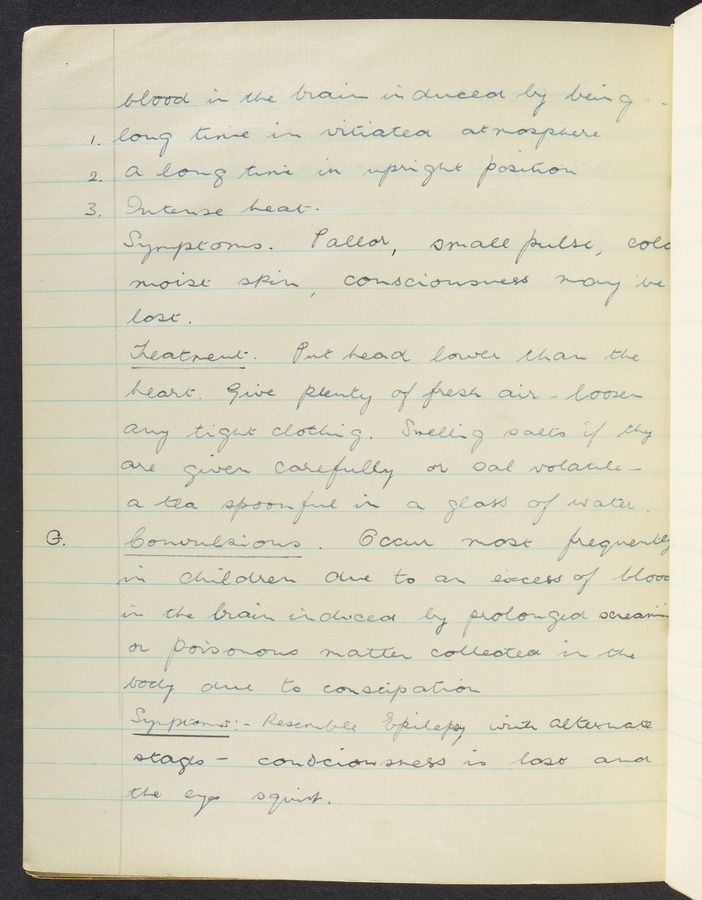 blood in the brain induced by being
1. long time in vitiated atmosphere
2. A long time in upright position
3. Intense heat.
Symptoms. Pallor, small pulse, cold
moist skin, consciousness may be
lost.
Treatment. Put head lower than the
heart. Give plenty of fresh air - loosen
any tight clothing. Smelling salts if they
are given carefully or sal volatile -
a tea spoonful in a glass of water.
G. Convulsions. Occur most frequently
in children due to an excess of blood
in the brain induced by prolonged screamin
or poisonous matter collected in the
body due to constipation
Symptoms:- Resembles Epilepsy with alternate
stages - consciousness is lost and
the eyes squint.